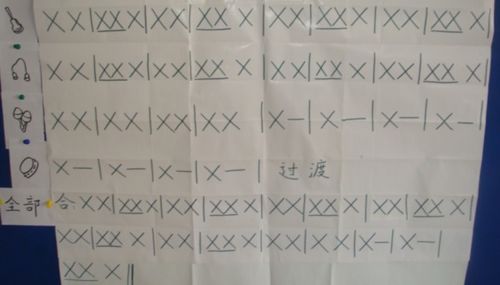 X X | XX X | X X | XX X | X X | XX X | X X | XX X |
X X | XX X | X X | XX X | X X | XX X | X X | XX X |
X X | X X | X X | X X | X — | X — | X — | X — |
X — | X — | X — | X — | 过渡
全部 合 X X | XX X | X X | XX X | X X | XX X | X X | XX X |
X X | XX X | X X | XX X | X X | X X | X — | X — |
XX X ‖